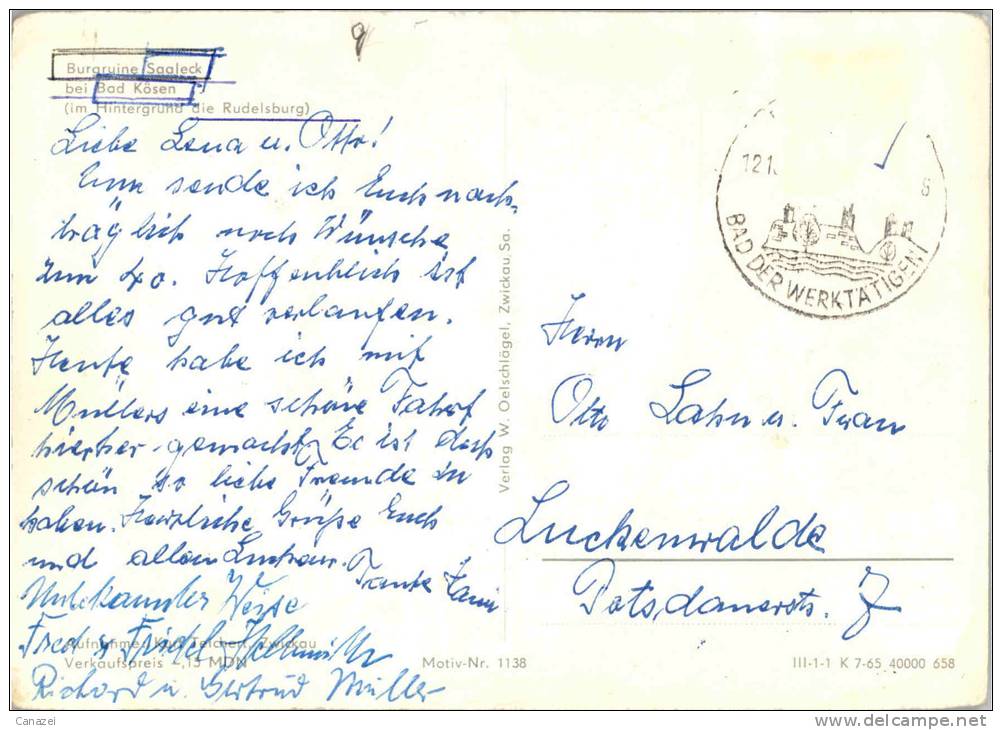 Burgruine Saaleck
bei Bad Kösen
(im Hintergrund die Rudelsburg)
Liebe Lena u. Otto!
sende ich Euch nach-
träglich noch Wünsche
zum 40. Hoffendlich ist
alles gut verlaufen.
Heute habe ich mit
Müllers eine schöne Fahrt
hierher gemacht. Es ist doch
schön so liebe Freunde zu
haben. Herzliche Grüße Euch
und allen
Tante
Unbekannter Weise
Fred u Friedel
Richard u. Gertrud Müller
Aufnahme: Kurt Teichert, Zwickau
Verkaufspreis -,15 MDN
Motiv-Nr. 1138
Verlag W. Oelschlägel, Zwickau, Sa.
121.
BAD DER WERKTÄTIGEN
Herrn
Otto Lahn u. Frau
Luckenwalde
Potsdamerstr. 7
III-1-1 K 7-65 40000 658
Canazei
www.delcampe.net